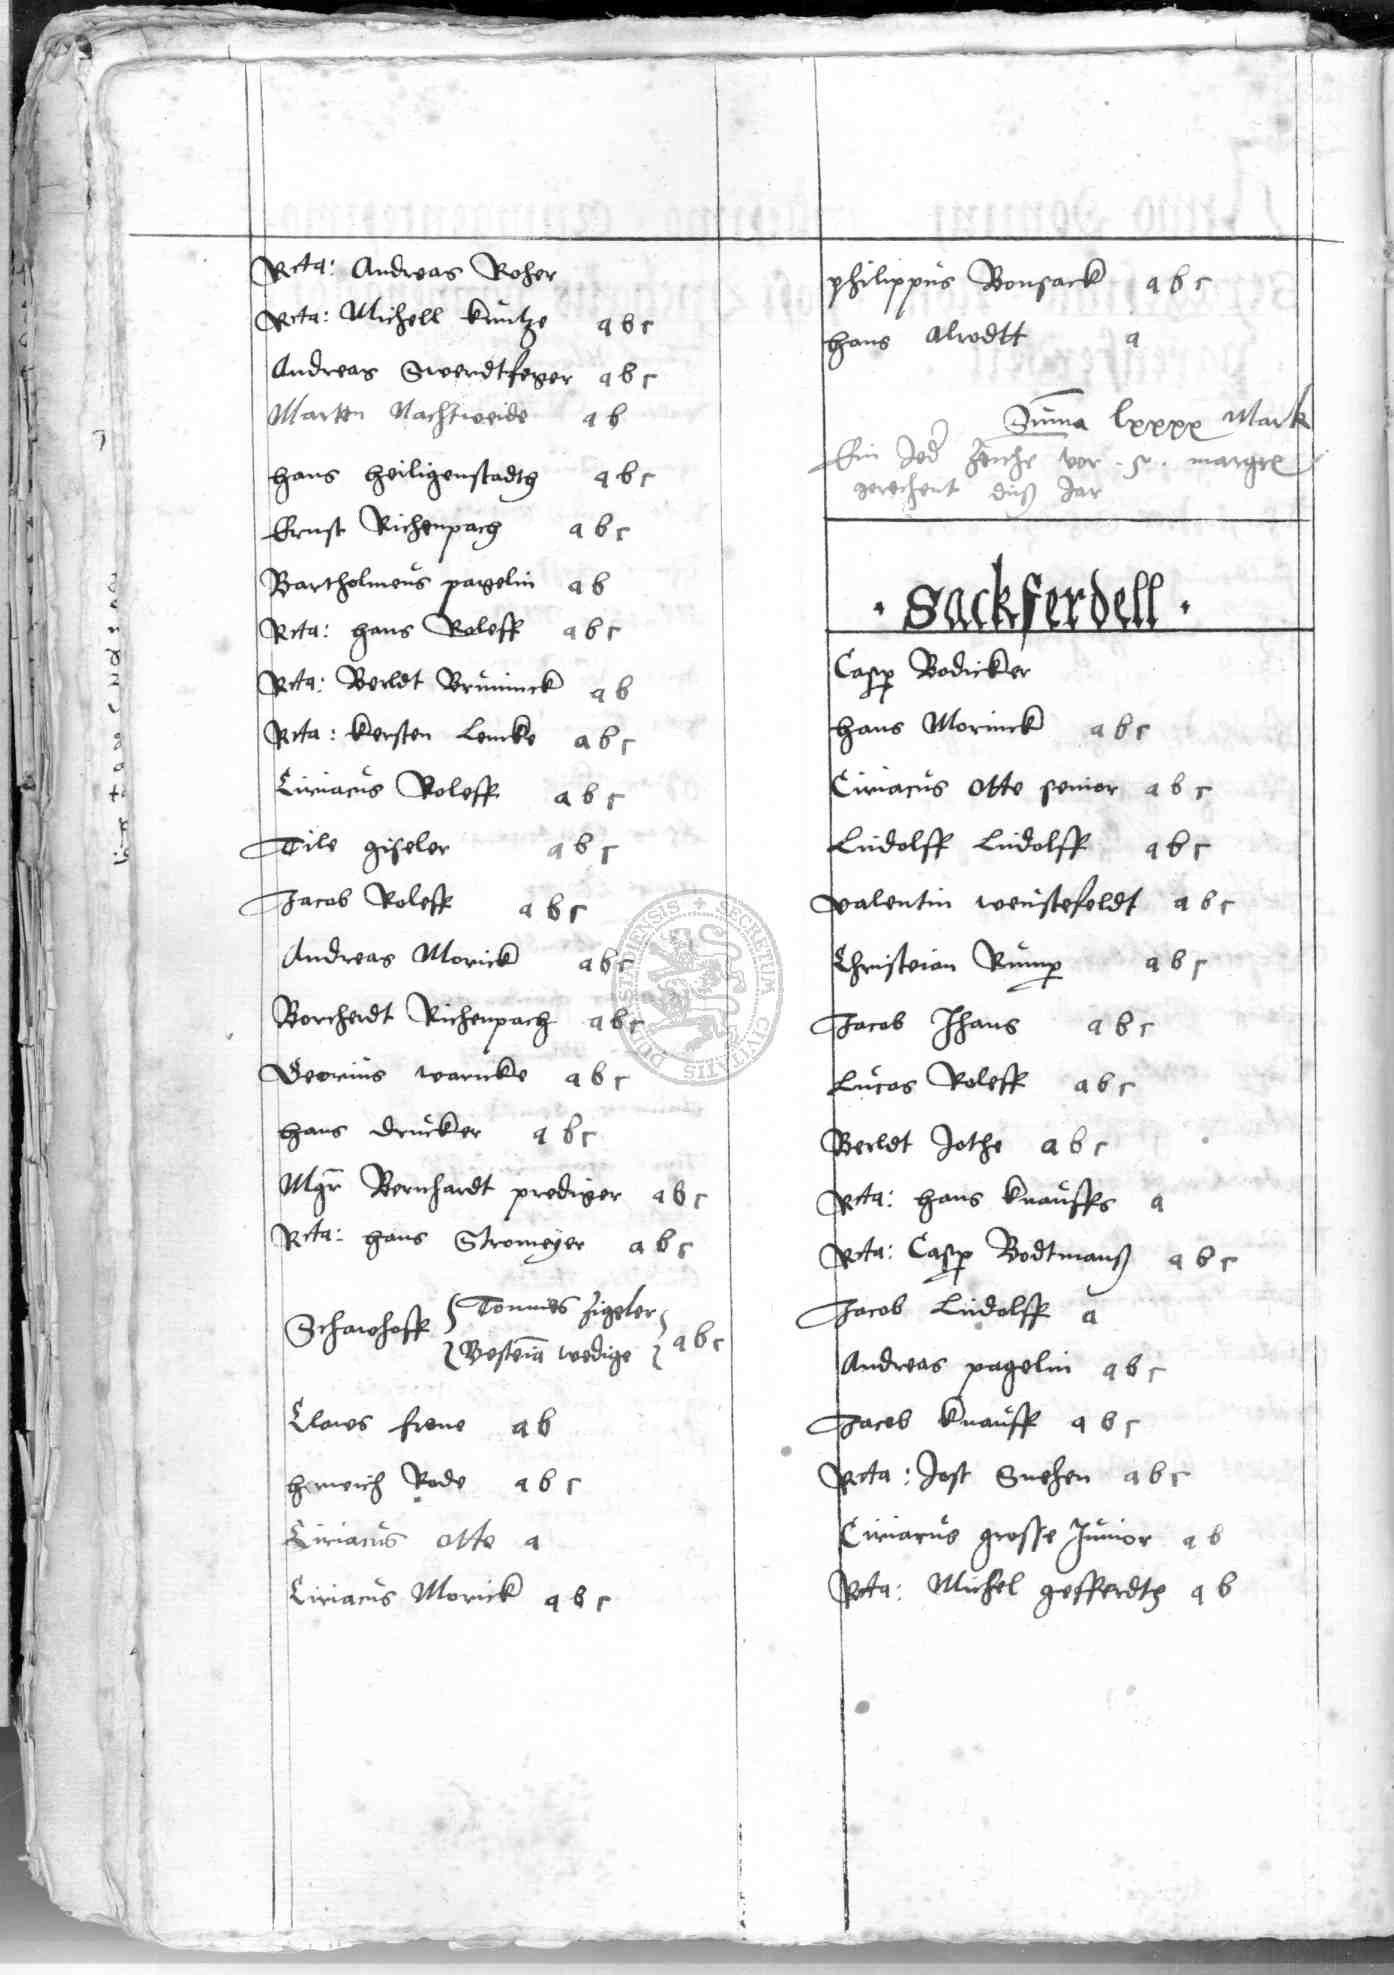 Rcta: Andreas Roher
Rcta: Michell kuntze a b c
Andreas Swerdtfeger a b c
Marten Nachtweide a b
hans heiligenstadtt a b c
Ernst Richenpach a b c
Bartholmeus pagelin a b
Rcta: hans Roleff a b c
Rcta: Berldt Bruninck a b
Rcta: kersten Lencke a b c
Ciriacus Roleff a b c
Tile giseler a b c
Jacob Roleff a b c
Andreas Morick a b c
Borcherdt Richenpach a b c
Georius warncke a b c
hans drucker a b c
Mgr Bernhardt prediger a b c
Rcta: hans Stromeyer a b c
Scharhoff Tonnies Zigeler
wedige a b c
Clawes frene a b
heinrich Rode a b c
Ciriacus Otte a
Ciriacus Morick a b c
philippus Bonsack a b c
hans Alrodtt a
Suma lxxxx Mark
Ein Jed Zeiche vor margk
gerechent diß Jar
· Sackferdell ·
Casp Bodicker
hans Morinck a b c
Ciriacus Otte senior a b c
Ludolff Ludolff a b c
valentin weistefeldt a b c
Christian Rump a b c
Jacob Jhans a b c
Lucas Roleff a b c
Berldt Jothe a b c
Rcta: hans knauffs a
Rcta: Casp Bodtmanß a b c
Jacob Ludolff a
Andreas pagelin a b c
Jacob knauff a b c
Rcta: Jost Snehen a b c
Ciriacus grosse Junior a b
Rcta: Michel gefferdtt a b
SECRETUM CIVITATIS DUDERSTADIENSIS